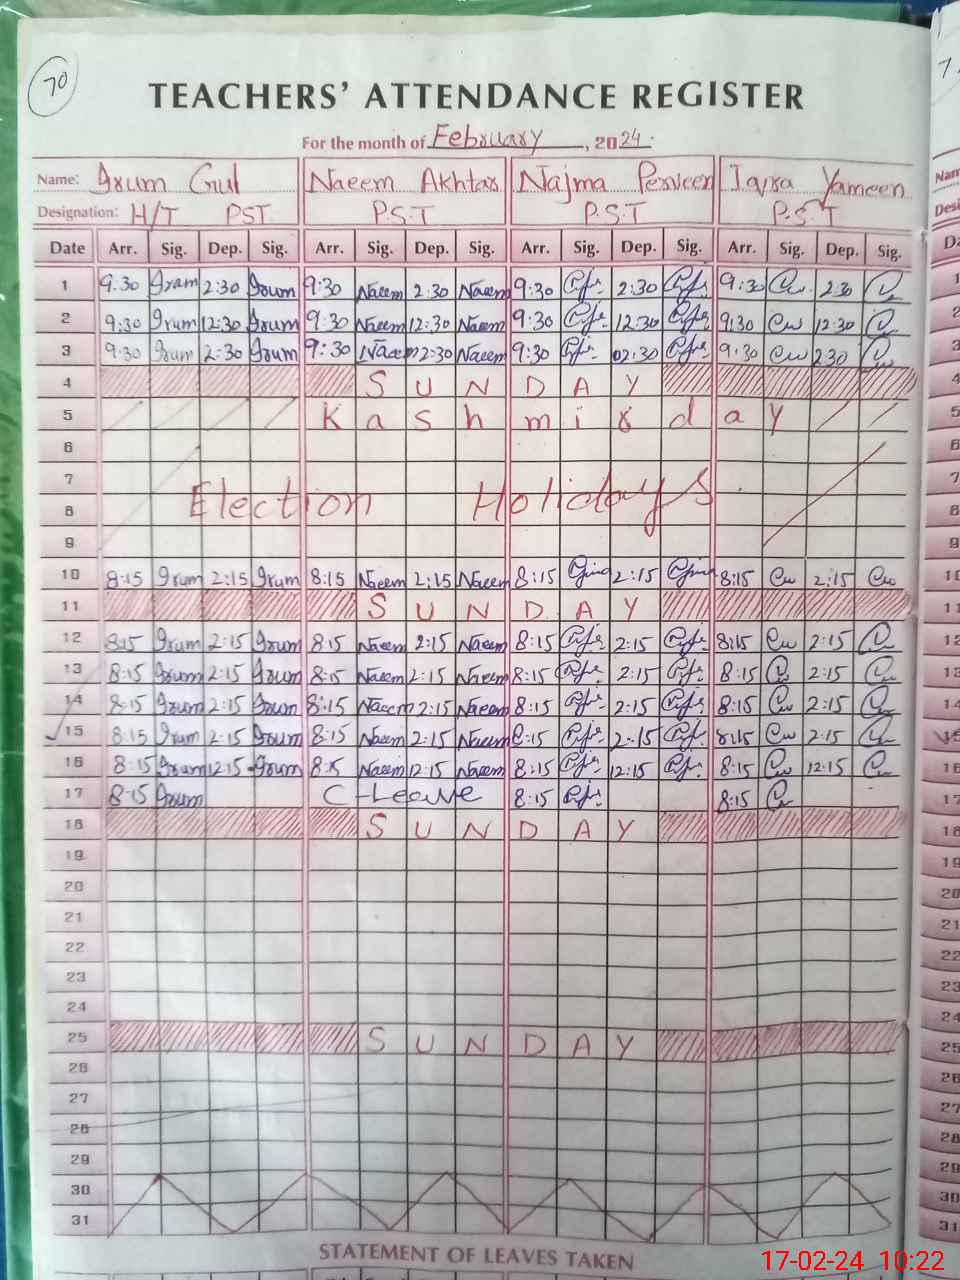 70
TEACHERS' ATTENDANCE REGISTER
For the month of February, 2024.
Name: Irum Gul Naeem Akhtar Najma Perveen Iqra Yameen
Designation: H/T PST P.S.T P.S.T P.S.T
Date Arr. Sig. Dep. Sig. Arr. Sig. Dep. Sig. Arr. Sig. Dep. Sig. Arr. Sig. Dep. Sig.
1 9:30 Irum 2:30 Irum 9:30 Naeem 2:30 Naeem 9:30 2:30 9:30 2:30
2 9:30 Irum 12:30 Irum 9:30 Naeem 12:30 Naeem 9:30 12:30 9:30 12:30
3 9:30 Irum 2:30 Irum 9:30 Naeem 2:30 Naeem 9:30 02:30 9:30 2:30
4 SUNDAY
5 Kashmir day
6
7
8 Election Holidays
9
10 8:15 Irum 2:15 Irum 8:15 Naeem 2:15 Naeem 8:15 2:15 8:15 2:15
11 SUNDAY
12 8:15 Irum 2:15 Irum 8:15 Naeem 2:15 Naeem 8:15 2:15 8:15 2:15
13 8:15 Irum 2:15 Irum 8:15 Naeem 2:15 Naeem 8:15 2:15 8:15 2:15
14 8:15 Irum 2:15 Irum 8:15 Naeem 2:15 Naeem 8:15 2:15 8:15 2:15
15 8:15 Irum 2:15 Irum 8:15 Naeem 2:15 Naeem 8:15 2:15 8:15 2:15
16 8:15 Irum 12:15 Irum 8:15 Naeem 12:15 Naeem 8:15 12:15 8:15 12:15
17 8:15 Irum C-Leave 8:15 8:15
18 SUNDAY
19
20
21
22
23
24
25 SUNDAY
26
27
28
29
30
31
STATEMENT OF LEAVES TAKEN
17-02-24 10:22